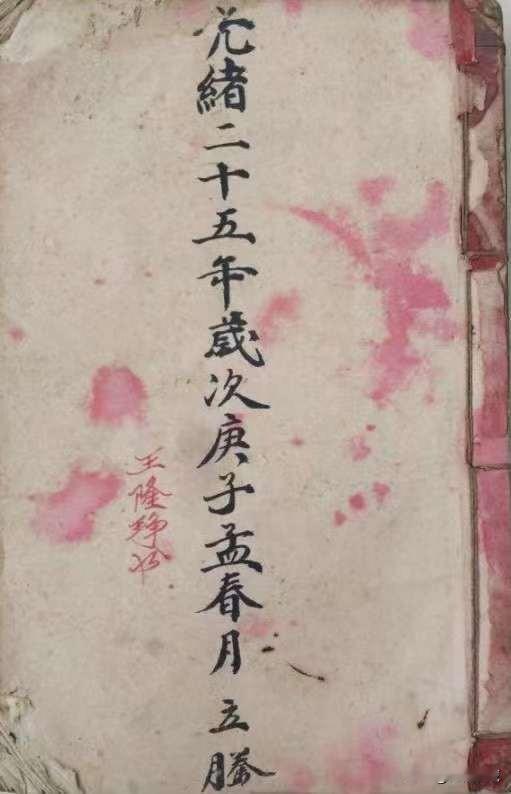 光緒二十五年歲次庚子孟春月立謄
王隆